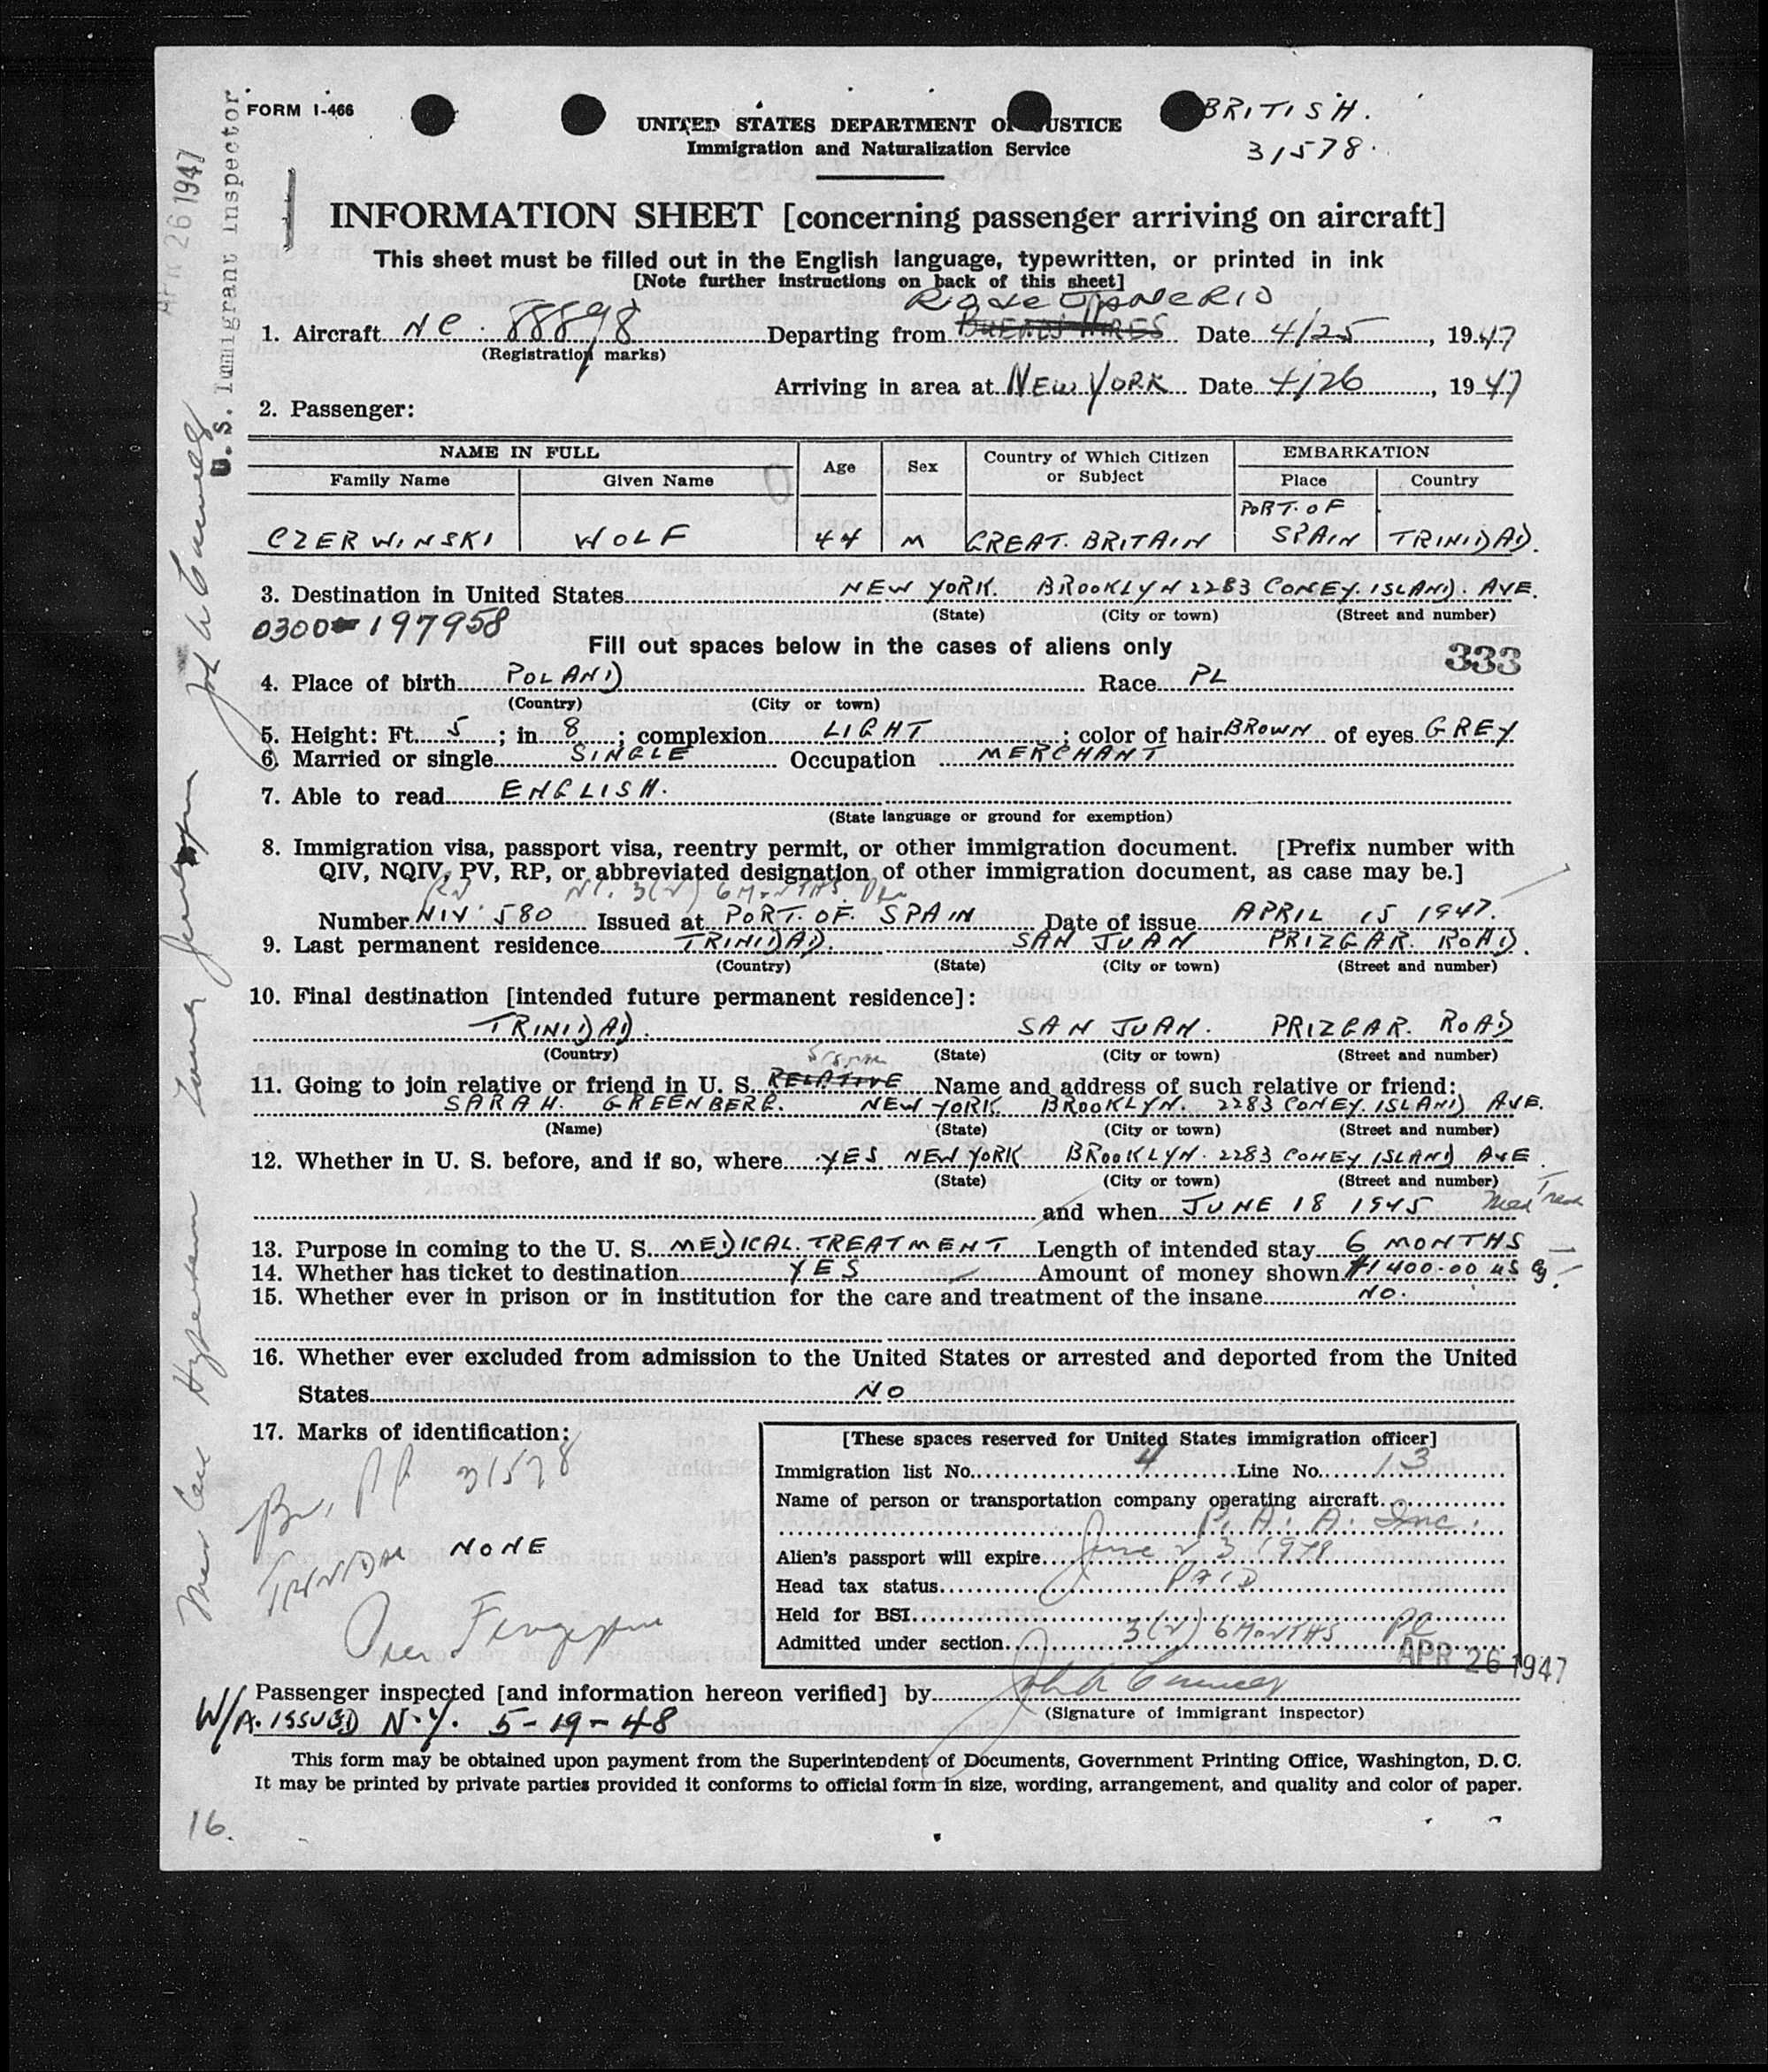 FORM I-466
BRITISH.
31578.
UNITED STATES DEPARTMENT OF JUSTICE
Immigration and Naturalization Service
INFORMATION SHEET [concerning passenger arriving on aircraft]
This sheet must be filled out in the English language, typewritten, or printed in ink
[Note further instructions on back of this sheet]
Rio de Janerio
1. Aircraft NC. 88898 Departing from BUENOS AIRES Date 4/25, 1947
(Registration marks)
Arriving in area at NEW YORK Date 4/26, 1947
2. Passenger:
NAME IN FULL Age Sex Country of Which Citizen or Subject EMBARKATION
Family Name Given Name Place Country
PORT. OF
CZERWINSKI WOLF 44 M GREAT. BRITAIN SPAIN TRINIDAD.
3. Destination in United States NEW YORK. BROOKLYN 2283 CONEY. ISLAND. AVE.
(State) (City or town) (Street and number)
0300-197958
Fill out spaces below in the cases of aliens only 333
4. Place of birth POLAND Race PL
(Country) (City or town)
5. Height: Ft. 5; in. 8; complexion LIGHT; color of hair BROWN of eyes GREY
6. Married or single SINGLE Occupation MERCHANT
7. Able to read ENGLISH.
(State language or ground for exemption)
8. Immigration visa, passport visa, reentry permit, or other immigration document. [Prefix number with
QIV, NQIV, PV, RP, or abbreviated designation of other immigration document, as case may be.]
3(2) 6 MONTHS
Number NIV 580 Issued at PORT. OF. SPAIN Date of issue APRIL 15 1947.
9. Last permanent residence TRINIDAD. SAN JUAN PRIZGAR. ROAD.
(Country) (State) (City or town) (Street and number)
10. Final destination [intended future permanent residence]:
TRINIDAD. SAN JUAN. PRIZGAR. ROAD
(Country) (State) (City or town) (Street and number)
11. Going to join relative or friend in U. S. RELATIVE Name and address of such relative or friend:
SARAH. GREENBERG. NEW YORK. BROOKLYN. 2283 CONEY. ISLAND AVE.
(Name) (State) (City or town) (Street and number)
12. Whether in U. S. before, and if so, where YES NEW YORK BROOKLYN. 2283 CONEY ISLAND AVE.
(State) (City or town) (Street and number)
and when JUNE 18 1945 Med Treat
13. Purpose in coming to the U. S. MEDICAL. TREATMENT Length of intended stay 6 MONTHS
14. Whether has ticket to destination YES Amount of money shown $1400.00 US
15. Whether ever in prison or in institution for the care and treatment of the insane NO.
16. Whether ever excluded from admission to the United States or arrested and deported from the United
States NO
17. Marks of identification:
Br. PP 31578
TRINIDAD NONE
[These spaces reserved for United States immigration officer]
Immigration list No. 4 Line No. 13
Name of person or transportation company operating aircraft
P. A. A. Inc.
Alien's passport will expire June 23 1948
Head tax status PAID
Held for BSI
Admitted under section 3(2) 6 MONTHS PL
APR 26 1947
Passenger inspected [and information hereon verified] by
(Signature of immigrant inspector)
W/A. ISSUED N.Y. 5-19-48
This form may be obtained upon payment from the Superintendent of Documents, Government Printing Office, Washington, D. C.
It may be printed by private parties provided it conforms to official form in size, wording, arrangement, and quality and color of paper.
16.
APR 26 1947
U. S. Immigrant Inspector